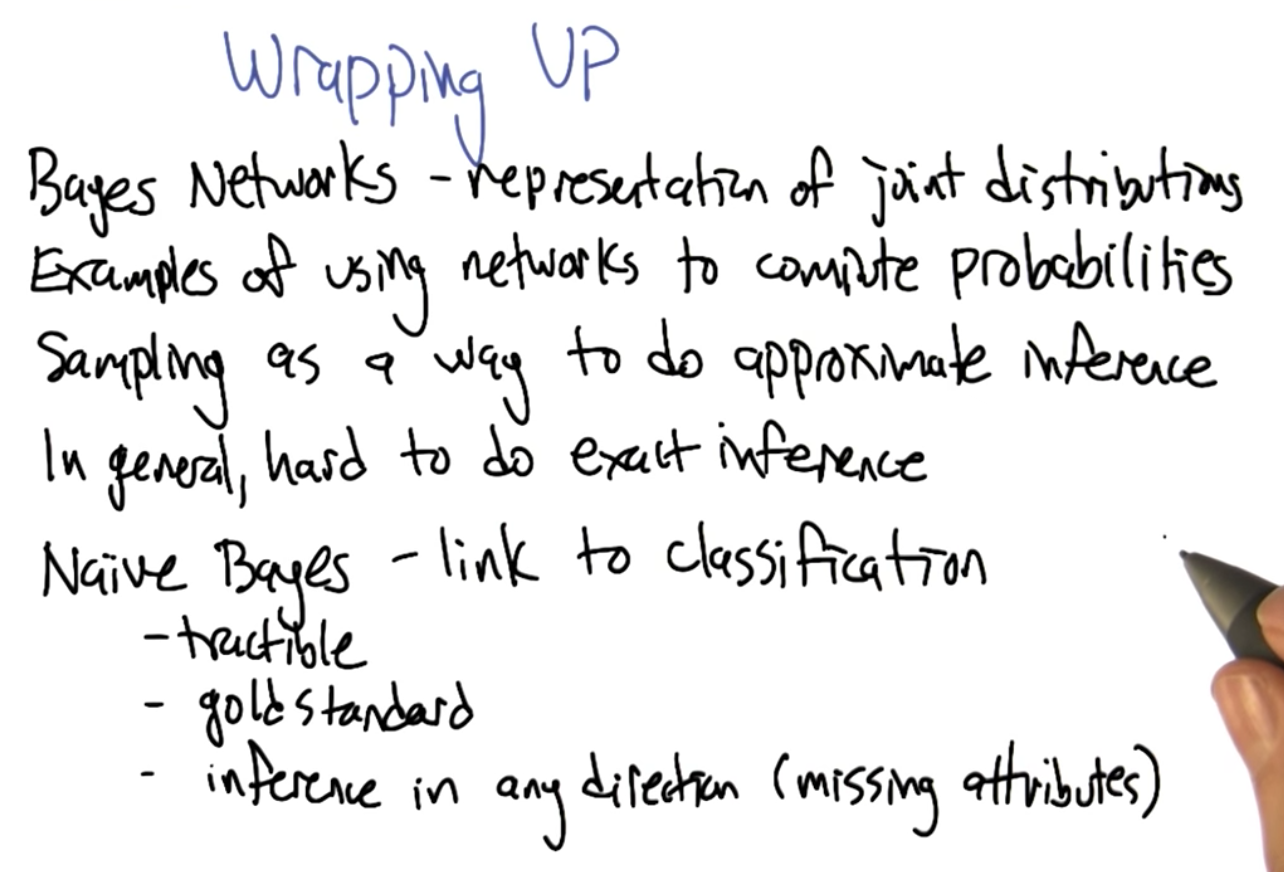 Wrapping UP
Bayes Networks - representation of joint distributions
Examples of using networks to compute probabilities
Sampling as a way to do approximate inference
In general, hard to do exact inference
Naïve Bayes - link to classification
- tractible
- gold standard
- inference in any direction (missing attributes)